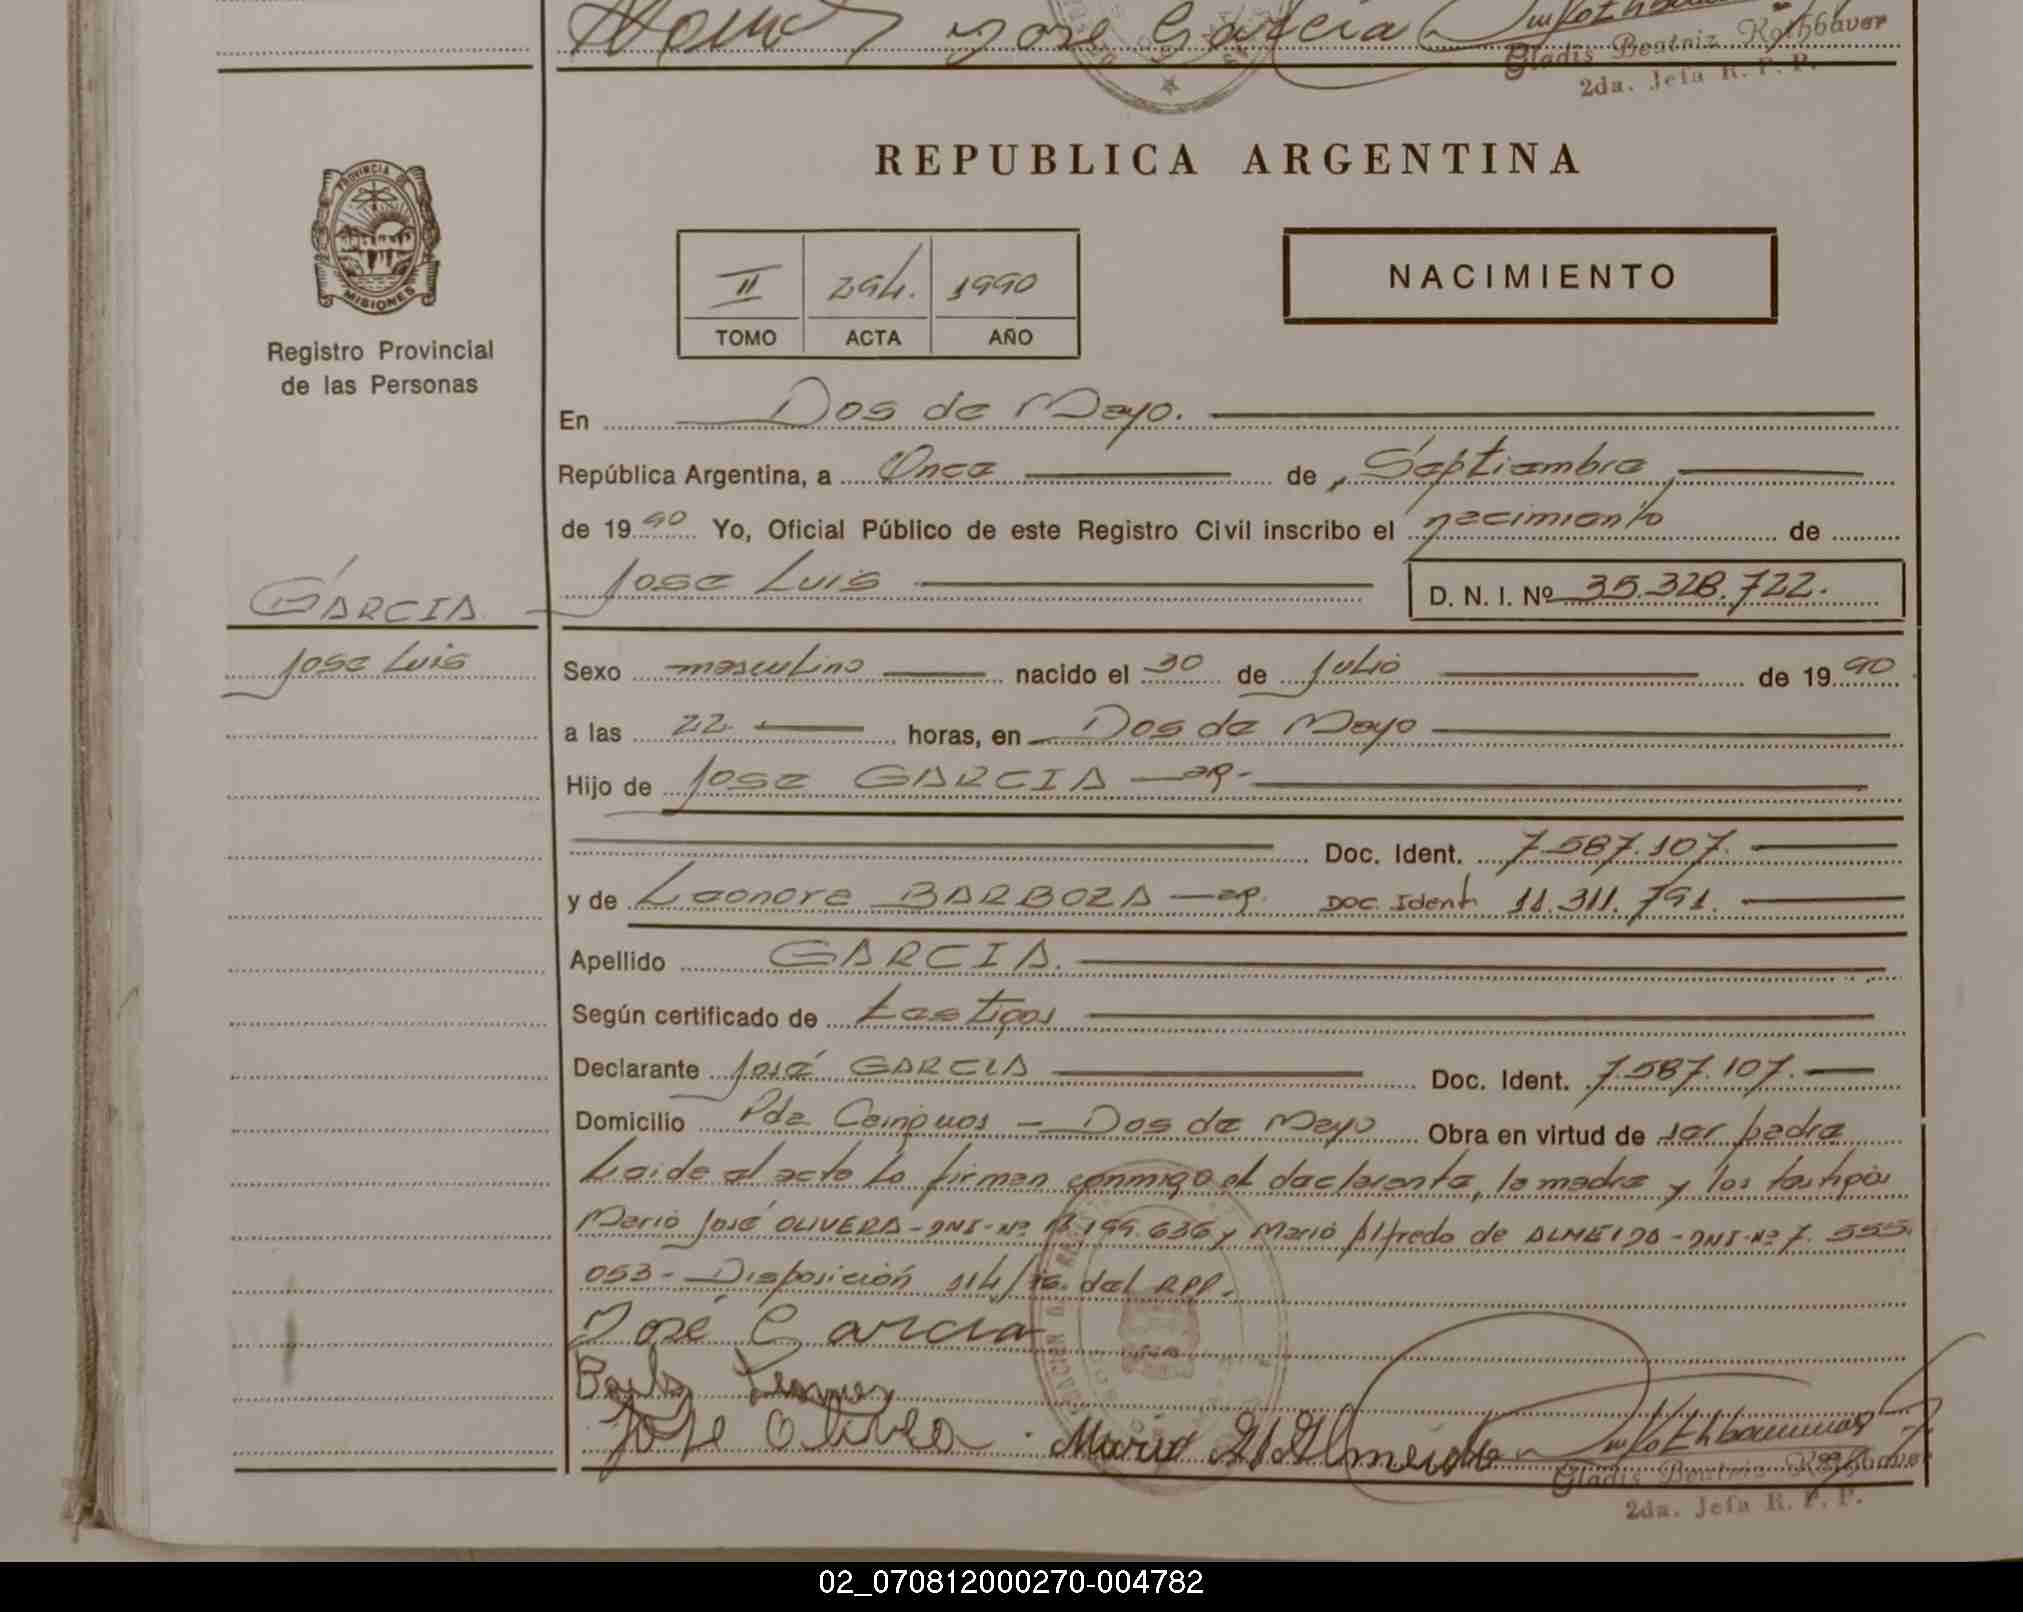 José García
Gladis Beatriz Rothbaver
2da. Jefa R. P. P.
REPUBLICA ARGENTINA
PROVINCIA DE
MISIONES
Registro Provincial
de las Personas
II 294. 1990
TOMO ACTA AÑO
NACIMIENTO
En Dos de Mayo.
República Argentina, a Once de Septiembre
de 1990 Yo, Oficial Público de este Registro Civil inscribo el nacimiento de
GARCIA
Jose Luis D. N. I. Nº 35.328.722.
Jose Luis
Sexo masculino nacido el 30 de Julio de 1990
a las 22 horas, en Dos de Mayo
Hijo de Jose GARCIA - ar -
Doc. Ident. 7.587.107.
y de Leonora BARBOZA - ar. Doc. Ident. 11.311.791.
Apellido GARCIA.
Según certificado de testigos
Declarante José GARCIA Doc. Ident. 7.587.107.
Domicilio Pda Dos de Mayo Obra en virtud de ser padre
Leida el acta la firman conmigo el declarante, la madre y los testigos
Mario José OLIVERA - DNI - Nº 199.636 y Mario Alfredo de ALMEIDA - DNI - Nº 7.555.
053 - Disposición 114/ del RPP.
José Garcia
Jose Olivera Mario Almeida
Gladis Beatriz Rothbaver
2da. Jefa R. P. P.
02_070812000270-004782